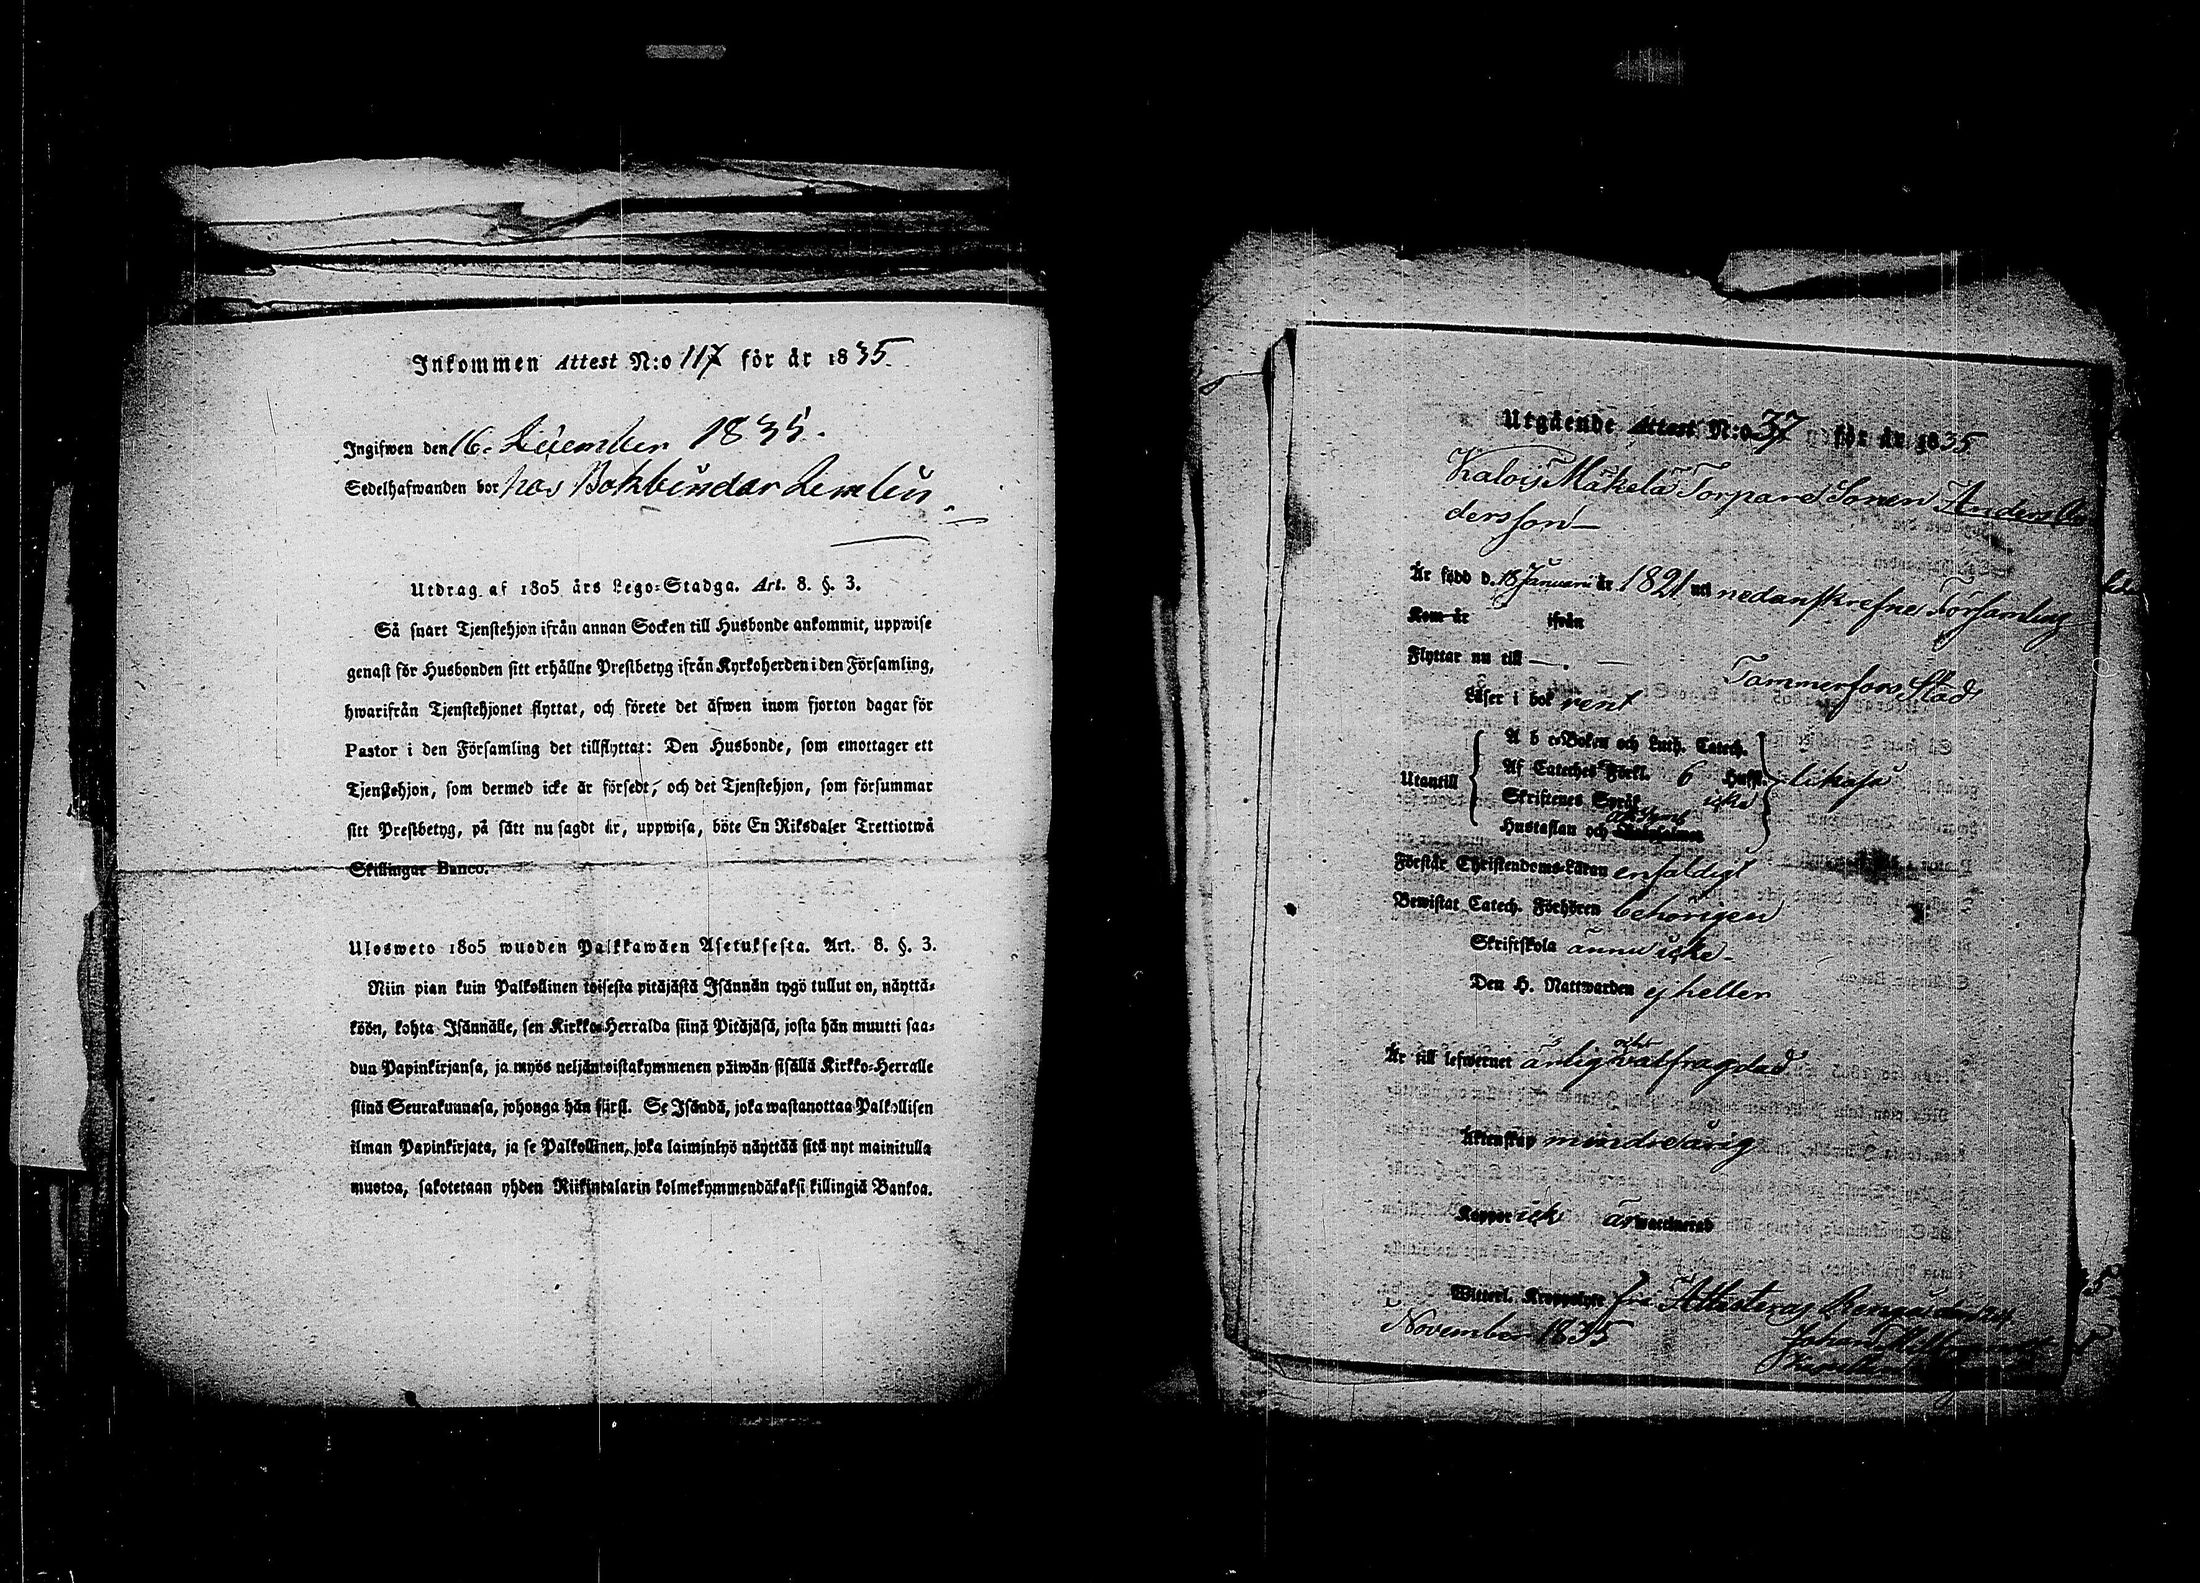 Inkommen Attest N:o 117 för år 1835.
Ingifwen den 16. December 1835.
Sedelhafwanden bor hos Bokbindar Lemlin
Utdrag af 1805 års Lego-Stadga. Art. 8. §. 3.
Så snart Tjenstehjon ifrån annan Socken till Husbonde ankommit, uppwise
genast för Husbonden sitt erhållne Prestbetyg ifrån Kyrkoherden i den Församling,
hwarifrån Tjenstehjonet flyttat, och förete det äfwen inom fjorton dagar för
Pastor i den Församling det tillflyttat: Den Husbonde, som emottager ett
Tjenstehjon, som dermed icke är försedt, och det Tjenstehjon, som försummar
sitt Prestbetyg, på sätt nu sagdt är, uppwisa, böte En Riksdaler Trettiotwå
Skillingar Banco.
Ulosweto 1805 wuoden Palkkawäen Asetuksesta. Art. 8. §. 3.
Niin pian kuin Palkollinen toisesta pitäjästä Isännän tygö tullut on, näyttä-
köön, kohta Isännälle, sen Kirkko-Herralda siinä Pitäjäsä, josta hän muutti saa-
dun Papinkirjansa, ja myös neljäntoistakymmenen päiwän sisällä Kirkko-Herralle
siinä Seurakunnasa, johonga hän siirsi. Se Isändä, joka wastanottaa Palkollisen
ilman Papinkirjata, ja se Palkollinen, joka laiminlyö näyttää sitä nyt mainitulla
muotoa, sakotetaan yhden Riikintalarin kolmekymmendäkaksi killingiä Bankoa.
Utgående Attest N:o 37 för år 1835
Kalois Mäkelä Torpare Sonen Anders An
dersson
Är född d. 18 Januari år 1821 uti nedanskrefne Församling
Kom år ifrån
Flyttar nu till Tammerfors Stad
Läser i bok rent
A b c-Boken och Luth. Catech.
Utantill Af Cateches Förkl. 6 Hufst. likaså
Skriftenes Språk icke
Hustaflan och
Förstår Christendoms-Läran enfaldigt
Bewistat Catech. Förhören behörigen
Skriftskola ännu icke
Den H. Nattwarden ej heller
Är till lefwernet ärlig och wälfrägdad
Äktenskap minderårig
Koppor icke är waccinerad
Witterl. Kroppslyte fri Attesteras
November 1835
Johan